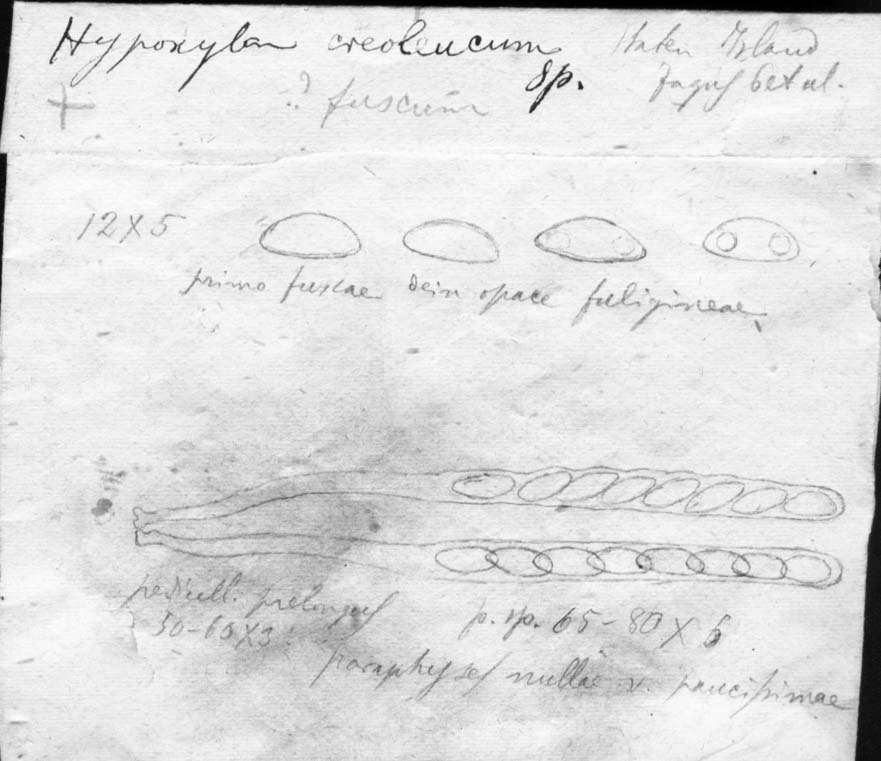 Hypoxylon creoleucum Staten Island
Sp. Fagus betul.
+ ? fuscum
12 X 5
primo fuscae dein opace fuligineae
pedicell. prelongus
50-60 X 3
p. sp. 65-80 X 6
paraphyses nullae v. paucissimae